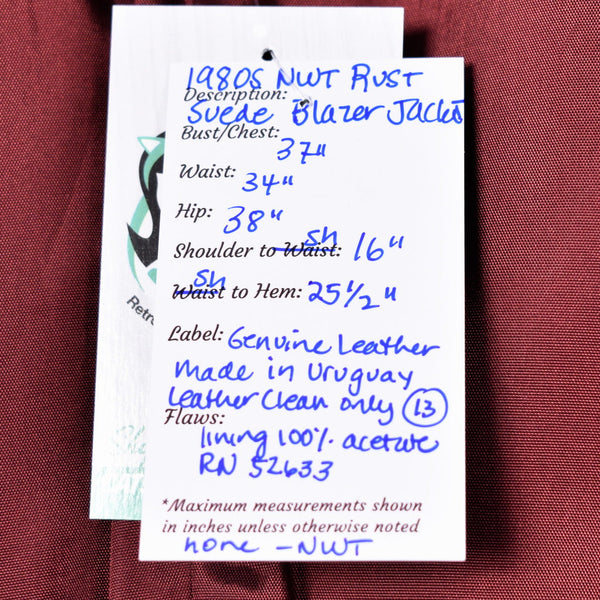 1980s NWT RUST
Description:
Suede Blazer Jacket
Bust/Chest:
37"
Waist: 34"
Hip: 38"
Shoulder to Waist: sh 16"
Waist sh to Hem: 25 1/2"
Label: Genuine Leather
made in Uruguay
Leather Clean only 13
Flaws:
lining 100% acetate
RN 52633
*Maximum measurements shown
in inches unless otherwise noted
none - NWT
Retro